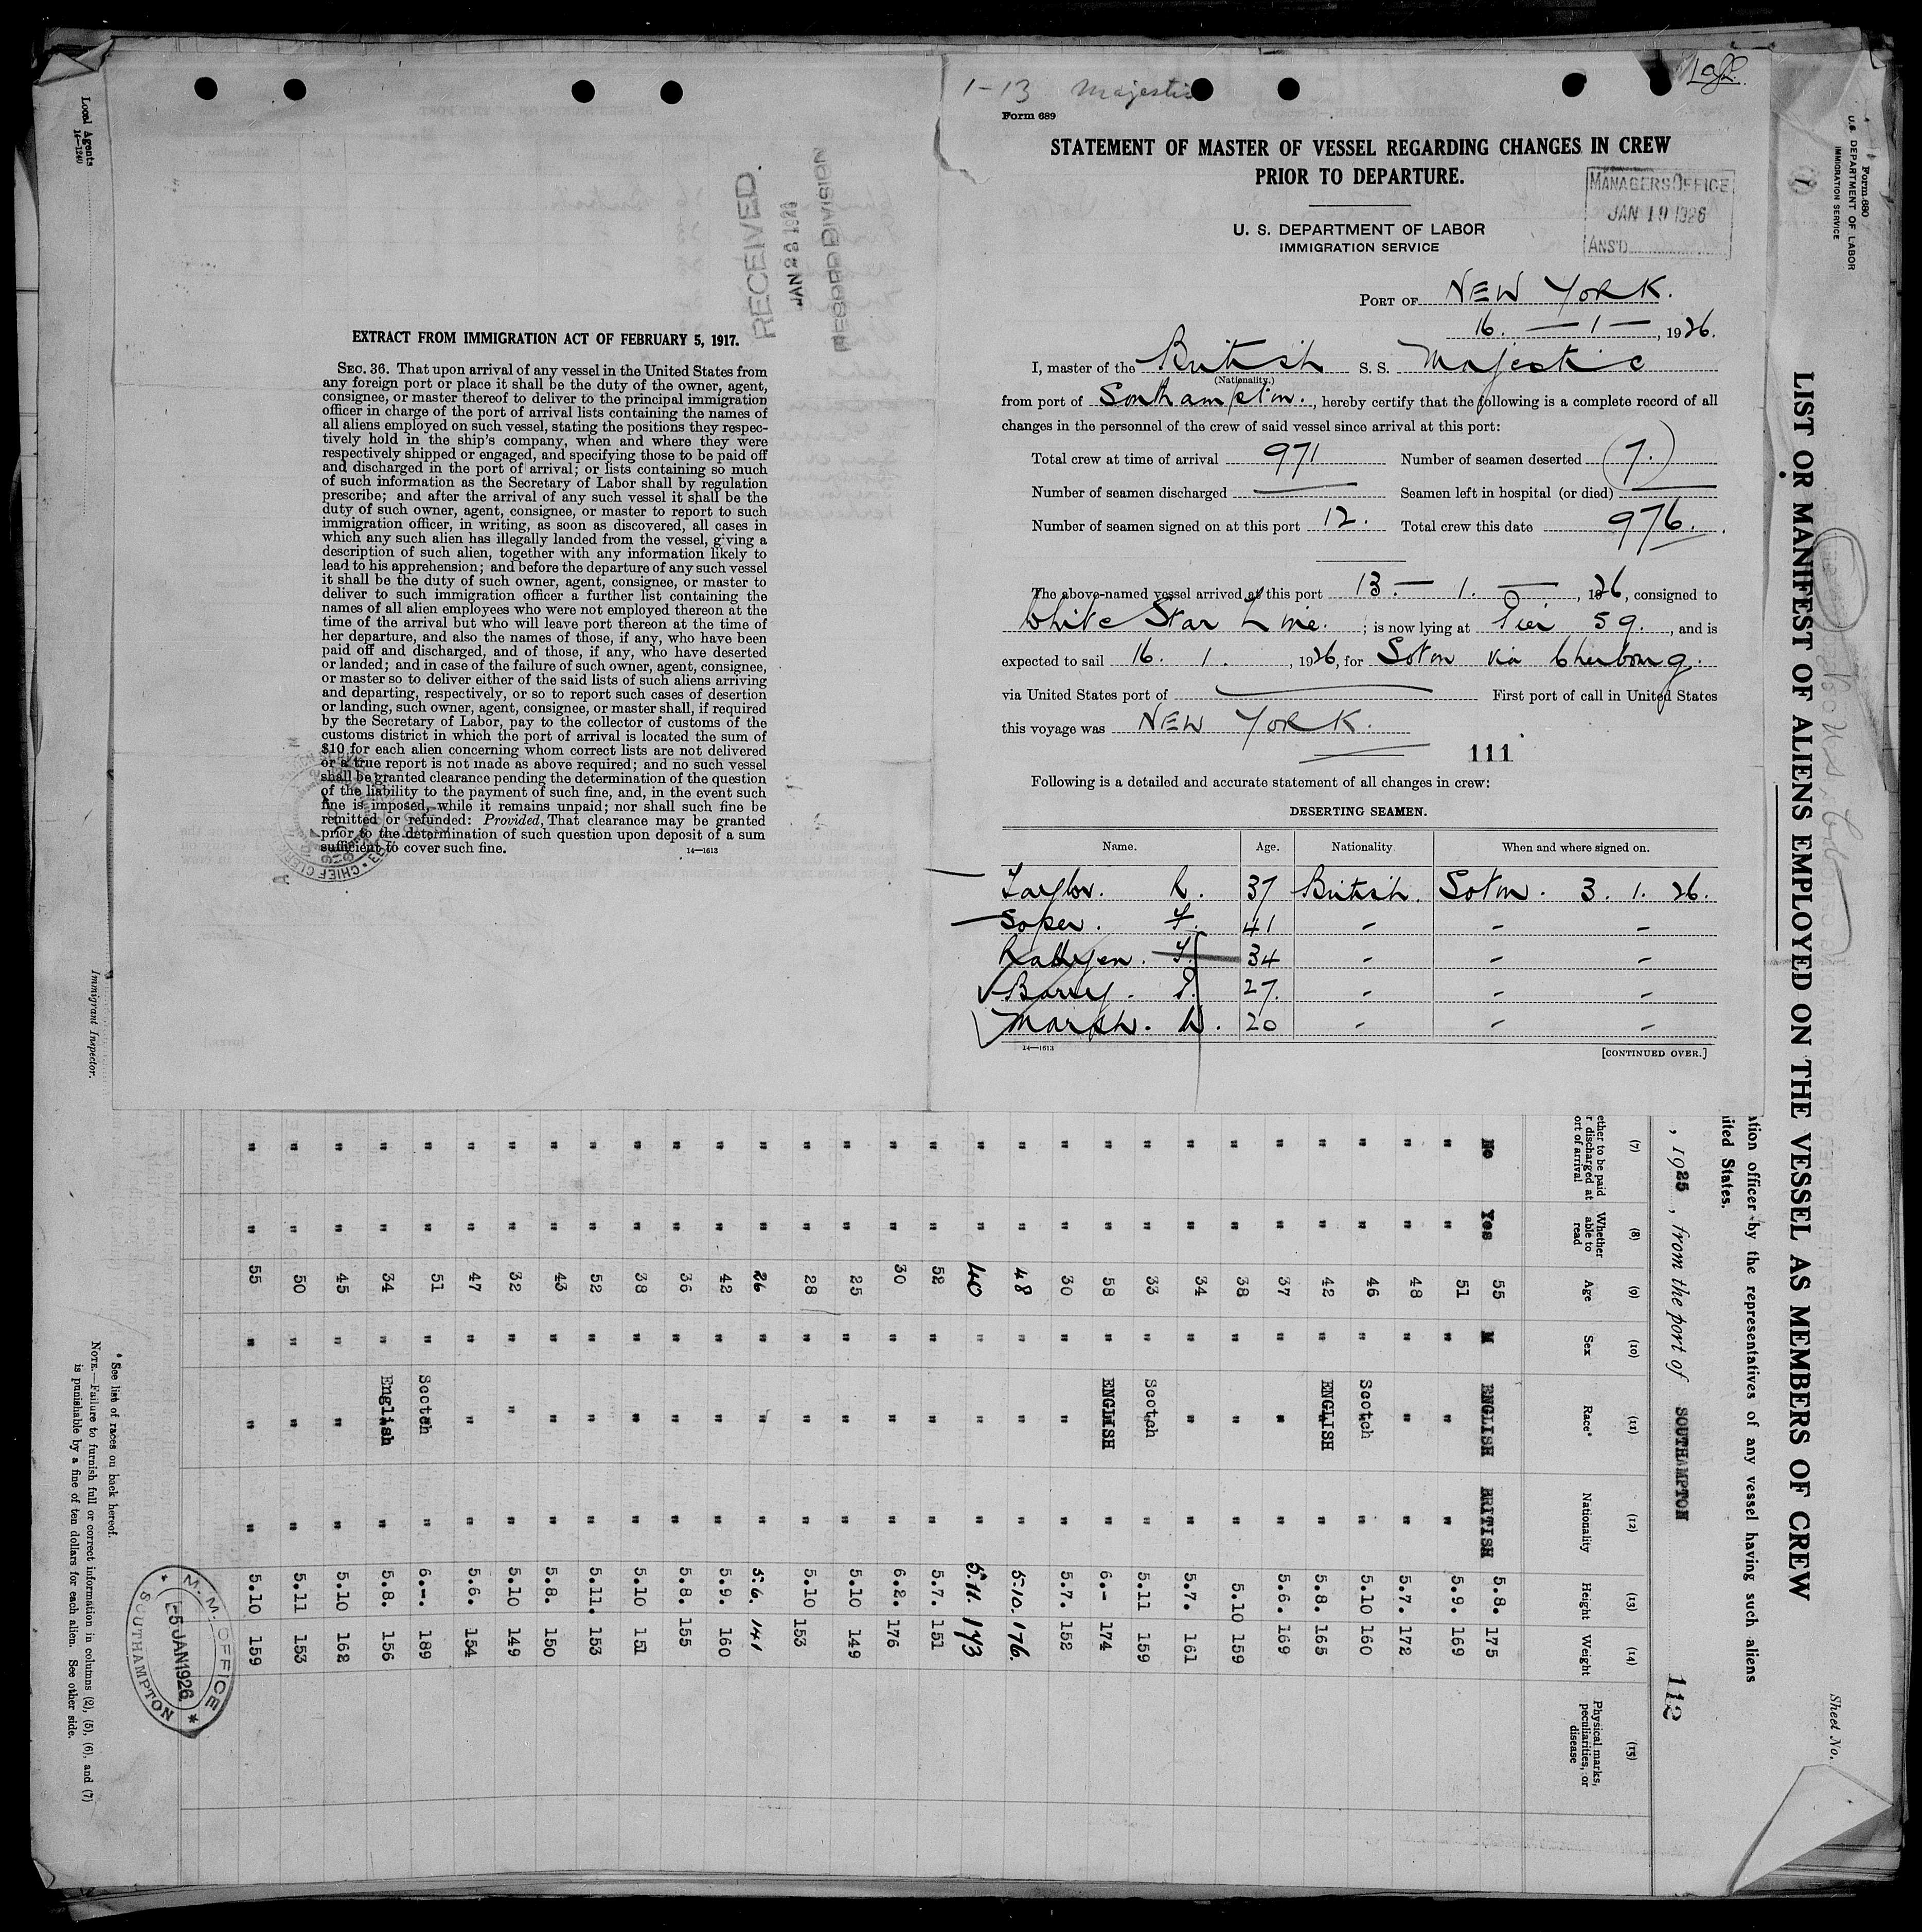 1-13 Majestic
Form 689
STATEMENT OF MASTER OF VESSEL REGARDING CHANGES IN CREW
PRIOR TO DEPARTURE.
U. S. DEPARTMENT OF LABOR
IMMIGRATION SERVICE
MANAGERS OFFICE
JAN 19 1926
ANS'D
PORT OF NEW YORK.
16. — 1 — , 1926.
I, master of the British S. S. Majestic
(Nationality.)
from port of Southampton. , hereby certify that the following is a complete record of all
changes in the personnel of the crew of said vessel since arrival at this port:
Total crew at time of arrival 971 Number of seamen deserted 7.
Number of seamen discharged — Seamen left in hospital (or died) —
Number of seamen signed on at this port 12. Total crew this date 976.
The above-named vessel arrived at this port 13. — 1. — , 1926, consigned to
White Star Line. ; is now lying at Pier 59. , and is
expected to sail 16. 1. , 1926, for Soton via Cherbourg.
via United States port of — First port of call in United States
this voyage was NEW YORK.
111
Following is a detailed and accurate statement of all changes in crew:
DESERTING SEAMEN.
Name. Age. Nationality. When and where signed on.
Taylor. R. 37 British. Soton. 3. 1. 26.
Soper. F. 41 - - -
34 - - -
Barry. P. 27. - - -
Marsh. W. 20 - - -
14—1613
[CONTINUED OVER.]
RECEIVED
JAN 23 1926
RECORD DIVISION
EXTRACT FROM IMMIGRATION ACT OF FEBRUARY 5, 1917.
SEC. 36. That upon arrival of any vessel in the United States from
any foreign port or place it shall be the duty of the owner, agent,
consignee, or master thereof to deliver to the principal immigration
officer in charge of the port of arrival lists containing the names of
all aliens employed on such vessel, stating the positions they respec-
tively hold in the ship's company, when and where they were
respectively shipped or engaged, and specifying those to be paid off
and discharged in the port of arrival; or lists containing so much
of such information as the Secretary of Labor shall by regulation
prescribe; and after the arrival of any such vessel it shall be the
duty of such owner, agent, consignee, or master to report to such
immigration officer, in writing, as soon as discovered, all cases in
which any such alien has illegally landed from the vessel, giving a
description of such alien, together with any information likely to
lead to his apprehension; and before the departure of any such vessel
it shall be the duty of such owner, agent, consignee, or master to
deliver to such immigration officer a further list containing the
names of all alien employees who were not employed thereon at the
time of the arrival but who will leave port thereon at the time of
her departure, and also the names of those, if any, who have been
paid off and discharged, and of those, if any, who have deserted
or landed; and in case of the failure of such owner, agent, consignee,
or master so to deliver either of the said lists of such aliens arriving
and departing, respectively, or so to report such cases of desertion
or landing, such owner, agent, consignee, or master shall, if required
by the Secretary of Labor, pay to the collector of customs of the
customs district in which the port of arrival is located the sum of
$10 for each alien concerning whom correct lists are not delivered
or a true report is not made as above required; and no such vessel
shall be granted clearance pending the determination of the question
of the liability to the payment of such fine, and, in the event such
fine is imposed, while it remains unpaid; nor shall such fine be
remitted or refunded: Provided, That clearance may be granted
prior to the determination of such question upon deposit of a sum
sufficient to cover such fine.
14—1613
Form 680
U. S. DEPARTMENT OF LABOR
IMMIGRATION SERVICE
LIST OR MANIFEST OF ALIENS EMPLOYED ON THE VESSEL AS MEMBERS OF CREW
Sheet No.
officer by the representatives of any vessel having such aliens
States.
, 1925 , from the port of SOUTHAMPTON
112
(7) (8) (9) (10) (11) (12) (13) (14) (15)
Whether able to read Age Sex Race* Nationality Height Weight Physical marks, peculiarities, or disease
No Yes 55 M ENGLISH BRITISH 5.8. 175
" " 51 " " " 5.9. 169
" " 48 " " " 5.7. 172
" " 46 " Scotch " 5.10 160
" " 42 " ENGLISH " 5.8. 165
" " 37 " " " 5.6. 169
" " 38 " " " 5.10 159
" " 34 " " " 5.7. 161
" " 33 " Scotch " 5.11 159
" " 58 " ENGLISH " 6.- 174
" " 30 " " " 5.7. 152
" " 48 " " " 5.10. 176.
" " 40 " " " 5.11. 173
" " 52 " " " 5.7. 151
" " 30 " " " 6.2. 176
" " 25 " " " 5.10 149
" " 28 " " " 5.10 153
" " 26 " " " 5.6. 141
" " 42 " " " 5.9. 160
" " 36 " " " 5.8. 155
" " 38 " " " 5.10 151
" " 52 " " " 5.11. 153
" " 43 " " " 5.8. 150
" " 32 " " " 5.10 149
" " 47 " " " 5.6. 154
" " 51 " Scotch " 6.-. 189
" " 34 " English " 5.8. 156
" " 45 " " " 5.10 162
" " 50 " " " 5.11 153
" " 55 " " " 5.10 159
* See list of races on back hereof.
NOTE.—Failure to furnish full or correct information in columns (2), (5), (6), and (7)
is punishable by a fine of ten dollars for each alien. See other side.
M.M. OFFICE
5 JAN 1926
SOUTHAMPTON
Local Agents
14—1240
Immigrant Inspector.